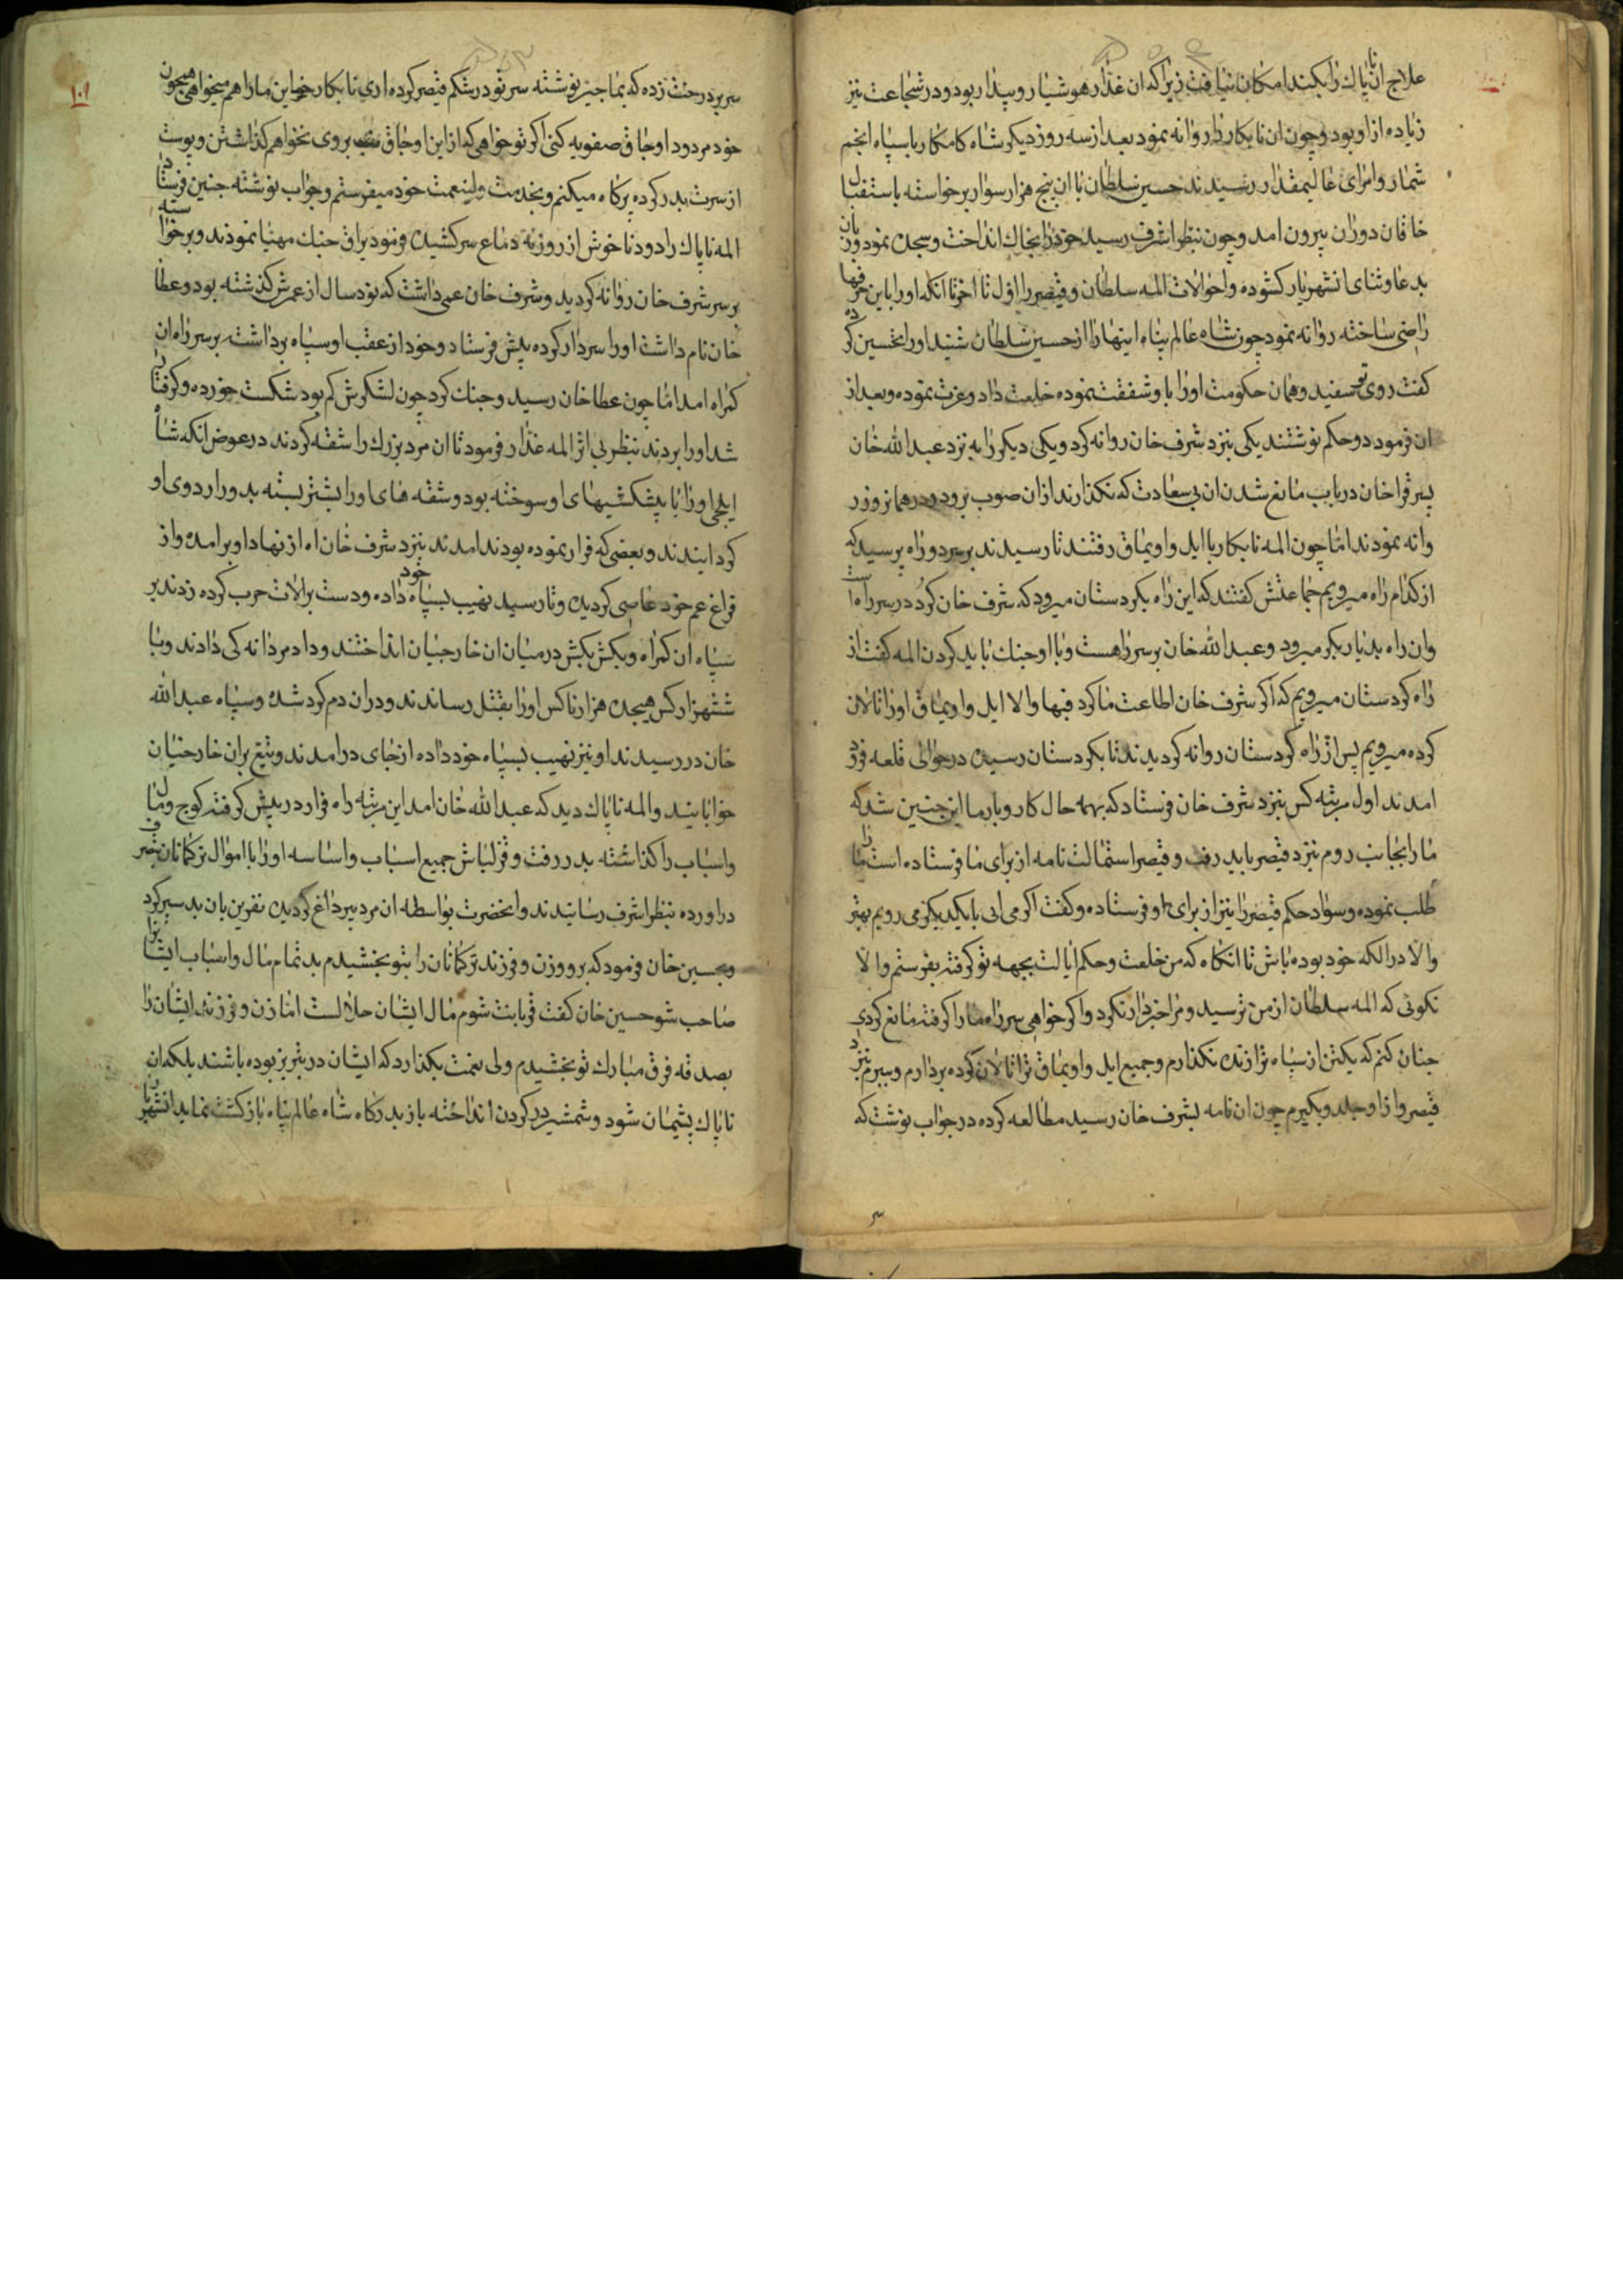 علاج ان ناپاك را بكند امكان نيافت زيرا كه ان غدار هوشيار و بيدار بود و در شجاعت نيز
زياده از او بود و چون ان نابكار را روانه نمود بعد از سه روز ديكر شاه كامكار با سپاه انجم
شمار و امراى عاليمقدار رسيدند حسين سلطان با ان پنج هزار سوار برخواسته باستقبال
خاقان دوران بيرون امد و چون بنظر اشرف رسيد خود را بخاك انداخت و سجده نمود و زبان
بدعا و ثناى انشهريار كشوده و احوالات المه سلطان و قيصر را اول تا اخر تا انكه او را باين حرفها
راضى ساخته روانه نمود چون شاه عالم پناه اينها را از حسين سلطان شنيد او را تحسين كرده
كفت روى تو سفيد و همان حكومت او را با و شفقت نموده خلعت داد و عزت نموده و بعد از
ان فرمود دو حكم نوشتند يكى بنزد شرف خان روانه كرد و يكى ديكر را به نزد عبد الله خان
پسر قراخان در باب مانع شدن ان بى سعادت كه نكذارند از ان صوب برود و در همانروز ر
وانه نمودند اما چون المه نابكار با ايل و اويماق رفتند تا رسيدند بر سر دو راه پرسيد كه
از كدام راه ميرويم جماعتش كفتند كه اين راه بكردستان ميرود كه شرف خان كرد در سر راه است
وان راه بديار بكر ميرود و عبد الله خان بر سر راهست و با او جنك بايد كردن المه كفت از
راه كردستان ميرويم كه اكر شرف خان اطاعت ما كرد فبها والا ايل و اويماق او را تالان
كرده ميرويم پس از راه كردستان روانه كرديدند تا بكردستان رسيده در حوالى قلعه فرود
امدند اول مرتبه كس بنزد شرف خان فرستاد كه بهه حال كار و بار ما اين چنين شد كه
ما را بجانب روم بنزد قيصر بايد رفت و قيصر استمالت نامه از براى ما فرستاده است ما را
طلب نموده و سواد حكم قيصر را نيز از براى او فرستاده و كفت اكر مى ائى با يكديكر مى رويم بهتر
والا در الكه خود بوده باش تا انكاه كه من خلعت و حكم ايالت بجهه تو كرفته بفرستم والا
نكوئى كه المه سلطان از من ترسيد و مرا خبردار نكرد و اكر خواهى سر راه ما را كرفته مانع كردى
چنان كنم كه يكتن از سپاه ترا زنده نكذارم و جميع ايل و اويماق ترا تالان كرده بردارم و ببرم نزد
قيصر و از او جلدو بكيرم چون ان نامه بشرف خان رسيد مطالعه كرده در جواب نوشت كه
١٠١
سر بر درخت زده كه بما چيز نوشته سر تو در شكم قيصر كرده ارى نابكار اين ما را هم ميخواهى همچون
خود مردود اوجاق صفويه كنى اكر تو خواهى كه از اين اوجاق بروى نخواهم كذاشتن و پوست
از سرت بدر كرده پر كاه ميكنم و بخدمت ولينعمت خود ميفرستم و جواب نوشته چنين فرستاد
المه ناپاك را دود ناخوش از روزنه دماغ سر كشيده فرمود يراق جنك مهيا نمودند و برخواسته
بر سر شرف خان روانه كرديد و شرف خان عمى داشت كه نود سال از عمرش كذشته بود و عطا
خان نام داشت او را سردار كرده پيش فرستاد و خود از عقب او سپاه برداشت بر سر راه ان
كمراه امد اما چون عطا خان رسيد و جنك كرد چون لشكرش كم بود شكست خورده و كرفتار
شد او را بردند بنظر بى اثر المه غدار فرمود تا ان مرد بزرك را شقه كردند در عوض انكه شاه
ايلچى او را با پيشكشيهاى او سوخته بود و شقه هاى او را بشتر بسته بدور اردوى او
كردانيدند و بعضى كه فرار نموده بودند امدند بنزد شرف خان اه از نهاد او برامده و از
قراغ عم خود عاصى كرديده و تا رسيد نهيب بسپاه خود داده و دست بر الات حرب كرده زدند بر
سپاه ان كمراه و بكش بكش در ميان ان خارجيان انداختند و داد مردانه كى دادند و با
ششهزار كس هيجده هزار ناكس او را بقتل رساندند و در ان دم كرد شده و سپاه عبد الله
خان در رسيدند او نيز نهيب بسپاه خود داده از جاى درامدند و تيغ بران خارجيان
خوابانيند و المه ناپاك ديد كه عبد الله خان امد اين مرتبه راه فرار در پيش كرفته كوچ و مال
و اسباب را كذاشته بدر رفت و قزلباش جميع اسباب و اساسه او را با اموال تركمانان بتصرف
دراورده بنظر اشرف رسانيدند و انحضرت بواسطه ان مرد پير داغ كرديده نفرين بان بد سير كرد
و بحسين خان فرمود كه برو و زن و فرزند تركمانان را بتو بخشيدم بد تمام مال و اسباب ايشانرا
صاحب شو حسين خان كفت قربانت شوم مال ايشان حلالست اما زن و فرزند ايشان را
بصدقه فرق مبارك تو بخشيدم ولى نعمت بكذارد كه ايشان در تبريز بوده باشند بلكه ان
ناپاك پشيمان شود و شمشير در كردن انداخته باز بدركاه شاه عالم پناه باز كشت نمايد انشهريار